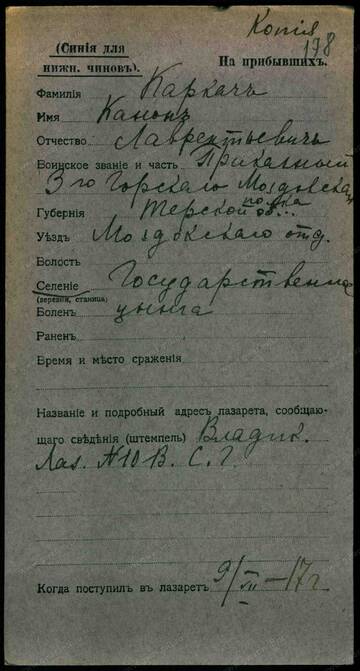 Копія
178
(Синія для нижн. чиновъ).
На прибывшихъ.
Фамилія Каркачъ
Имя Канонъ
Отчество Лаврентьевичъ
Воинское званіе и часть Приказный
3го Горскаго Моздокска
полка
Губернія Терской об...
Уѣздъ Моздокскаго отд.
Волость
Селеніе Государственная
(деревня, станица)
Боленъ цынга
Раненъ
Время и мѣсто сраженія
Названіе и подробный адресъ лазарета, сообщаю-
щаго свѣдѣнія (штемпель) Владик.
Лаз. N10 В. С. Г.
Когда поступилъ въ лазаретъ 9/VII—17 г.